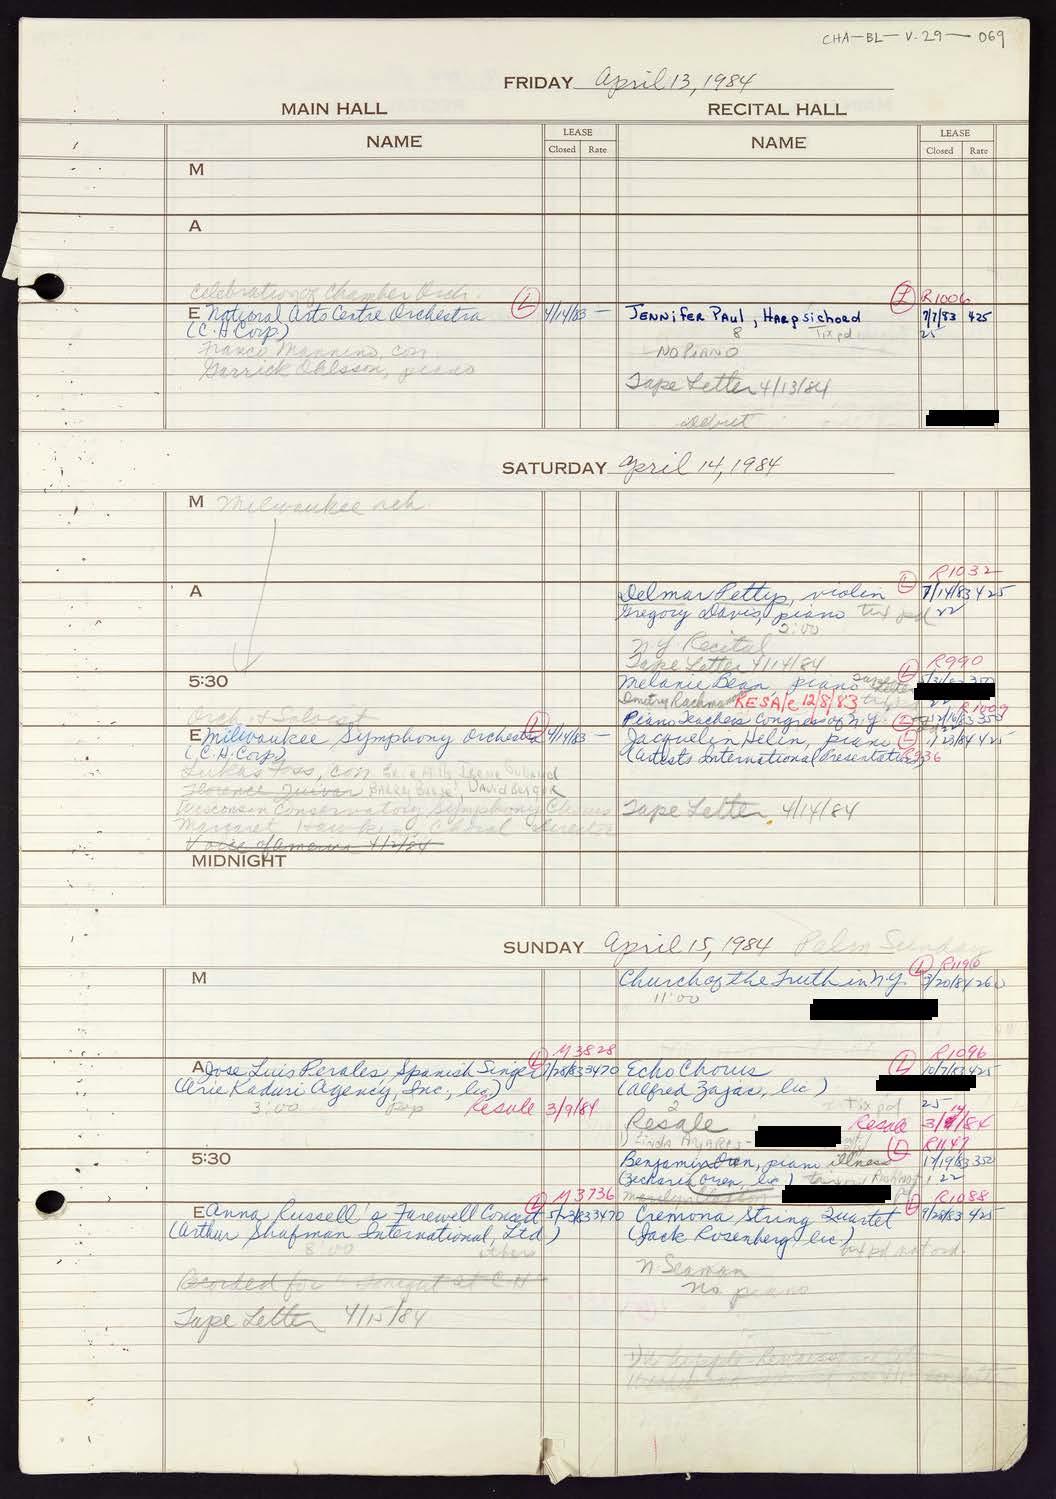 CHA-BL-V.29-069
FRIDAY April 13, 1984
MAIN HALL
RECITAL HALL
NAME
LEASE
Closed Rate
NAME
LEASE
Closed Rate
M
A
Celebration of Chamber Orch.
E National Arts Centre Orchestra (L) 4/14/83 —
(C.H. Corp)
Franco Mannino, con.
Garrick Ohlsson, piano
(L) R1006
Jennifer Paul, Harpsichord 7/7/83 425
8 Tix pd 25
NO PIANO
Tape Letter 4/13/84
debut
SATURDAY April 14, 1984
M Milwaukee reh.
A
5:30
Orch. & Soloist
E Milwaukee Symphony Orchestra (L) 4/14/83 —
(C.H. Corp)
Lukas Foss, con
Florence Quivar David Berger
Wisconsin Conservatory Symphony Chorus
Margaret Hawkins, Choral Director
Voice of America 4/12/84
MIDNIGHT
R1032
Delmar Pettys, violin (L) 7/14/83 425
Gregory Davis, piano tix pd 22
2:00
NY Recital
Tape Letter 4/14/84
(L) R990
Melanie Bean, piano 350
Dmitry Rachmanov RESALE 12/8/83
R1009
Piano Teachers Congress of N.Y. (L) 353
Jacquelin Helin, piano (L) 1/23/84 425
(Artists International Presentations)
Tape Letter 4/14/84
SUNDAY April 15, 1984 Palm Sunday
M
(L) R1190
Church of the Truth in N.Y. 3/20/84 260
11:00
(L) M3828
A Jose Luis Perales, Spanish Singer 7/28/83 3470
(Arie Kaduri Agency, Inc., lic)
3:00 pop Resale 3/9/84
(L) R1096
Echo Chorus 10/7/83 425
(Alfred Zajac, lic)
2 Tix pd 25
Resale Resale 3/9/84
Linda
5:30
(L) R1147
Benjamin Oren, piano illness 1/19/83 350
(Zecharia Oren, lic) 22
(L) M3736
E Anna Russell's Farewell Concert 5/23/83 3470
(Arthur Shafman International, Ltd)
8:00 others
Recorded for "Tonight at C.H."
Tape Letter 4/15/84
(L) R1088
Cremona String Quartet 9/28/83 425
(Jack Rosenberg, lic)
tix pd not ord.
N. Seaman
No piano